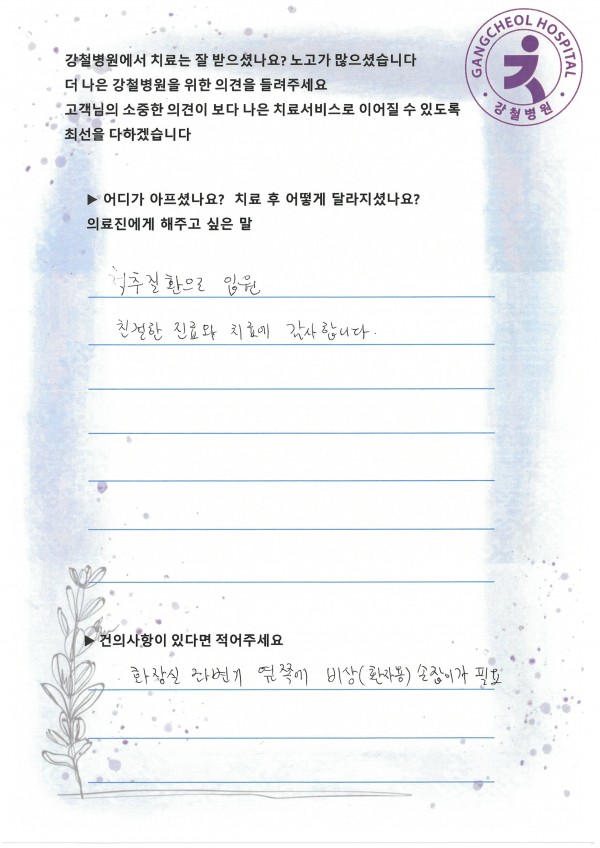 GANGCHEOL HOSPITAL
강철병원
강철병원에서 치료는 잘 받으셨나요? 노고가 많으셨습니다
더 나은 강철병원을 위한 의견을 들려주세요
고객님의 소중한 의견이 보다 나은 치료서비스로 이어질 수 있도록
최선을 다하겠습니다
▶ 어디가 아프셨나요? 치료 후 어떻게 달라지셨나요?
의료진에게 해주고 싶은 말
척추질환으로 입원
친절한 진료와 치료에 감사합니다.
▶ 건의사항이 있다면 적어주세요
화장실 좌변기 옆쪽에 비상(환자용) 손잡이가 필요